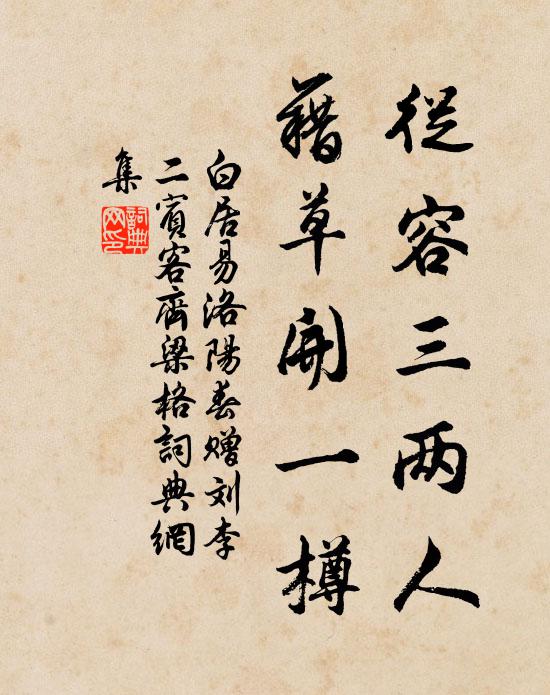 從容三两人
藉草開一樽
白居易洛陽春赠刘李
二賓客齊梁格詞典網
集
詞典
网印